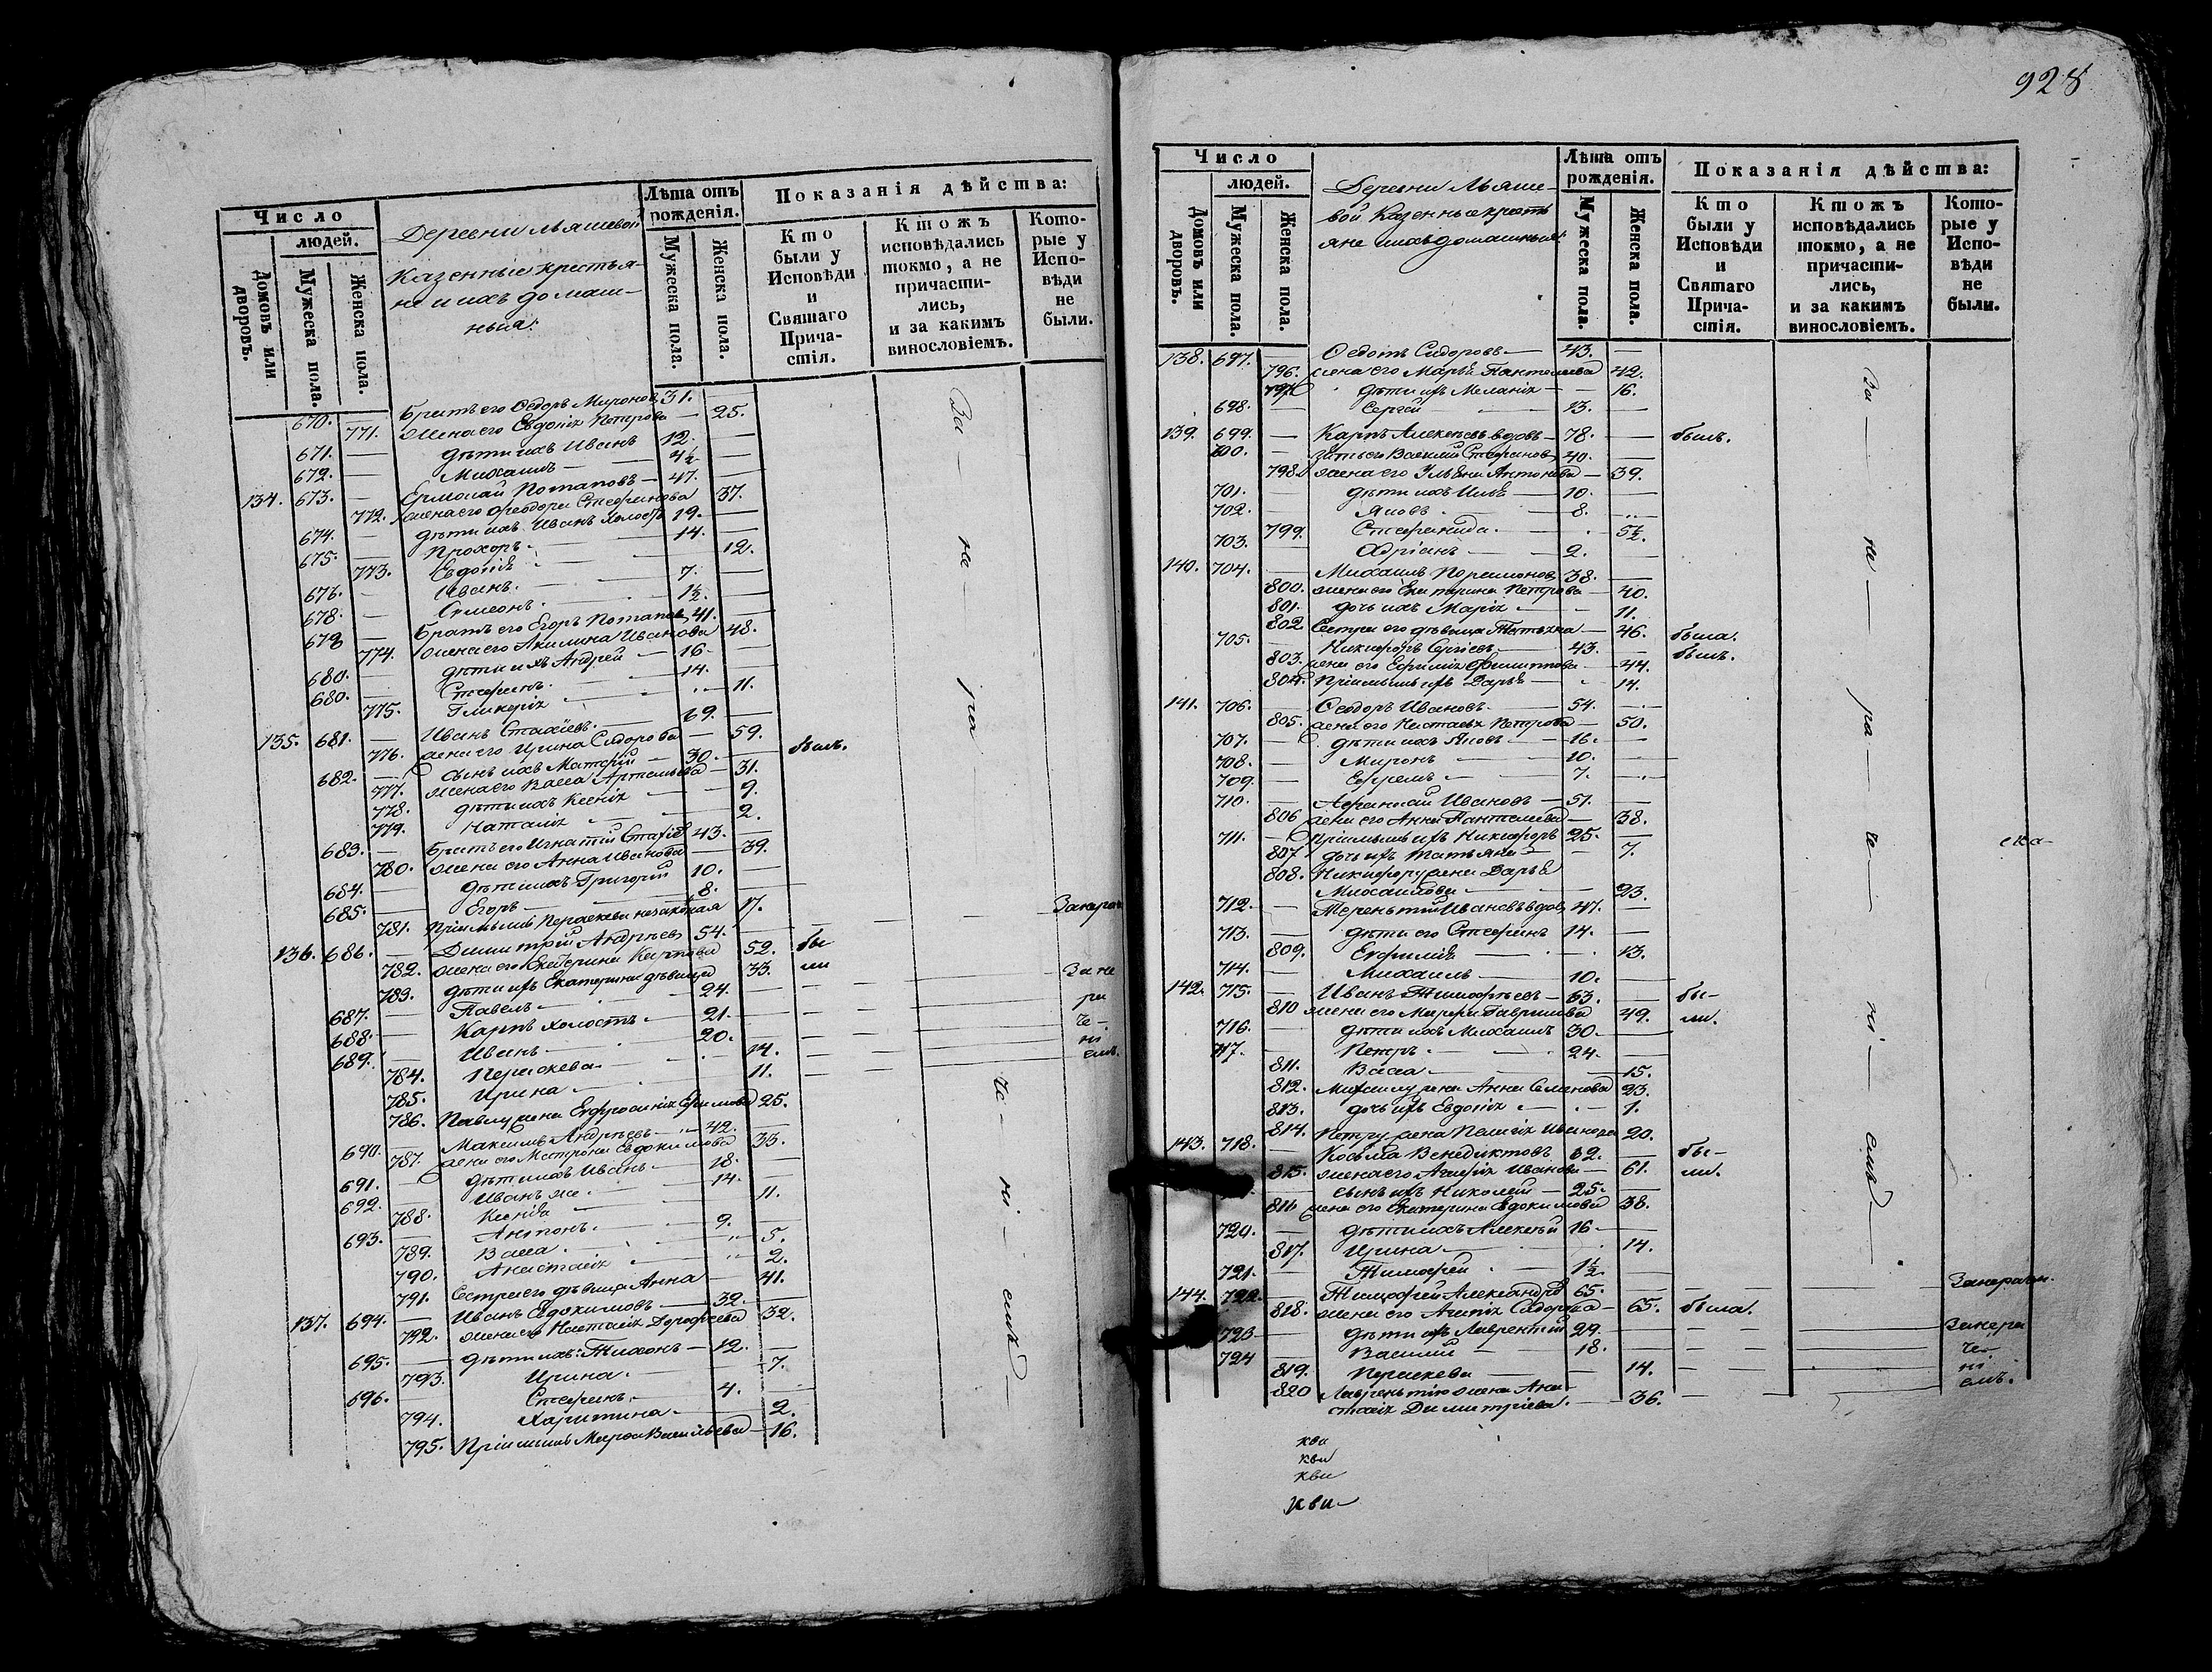 Число
людей.
Домовъ или дворовъ.
Мужеска пола.
Женска пола.
Деревни Ляшевой
Казенные крестья-
не и ихъ домаш-
ныя:
Лѣта отъ
рожденія.
Мужеска пола.
Женска пола.
Показанія дѣйства:
Кто
были у
Исповѣди
и
Святаго
Прича-
стія.
Ктожъ
исповѣдались
токмо, а не
причасти-
лись,
и за какимъ
винословіемъ.
Кото-
рые у
Испо-
вѣди
не
были.
За — не — ра — че — ні — емъ
670. — Братъ его Ѳедоръ Миронов 31. —
771. Жена его Евдокія Петрова — 25.
671. — дѣти ихъ Иванъ 12. —
672. — Михаилъ — 4½ —
134. 673. — Ермолай Потаповъ — 47. —
772. жена его Ѳеодора Стефанова 37.
674. — дѣти ихъ Иванъ холостъ 19. —
675. — Прохоръ — 14. —
773. Евдокія — 12.
676. — Иванъ — 7. —
678. — Симеонъ — 1½ —
679 — Братъ его Егоръ Потапов 41. —
774. жена его Акилина Иванова 48.
680. — дѣти ихъ Андрей — 16 —
680. — Стефанъ — 14. —
775. Гликерія — 11.
135. 681. — Иванъ Стахіевъ — 69. —
776. жена его Ирина Сидорова — 59.
682. — сынъ ихъ Матфій — 30. — былъ.
777. жена его Васса Артемьева — 31.
778. дѣти ихъ Ксенія — 9.
779. Наталія — 2.
683. — Братъ его Игнатій Стахіев 43. —
780. жена его Анна Иванова — 39.
684. — дѣти ихъ Григорій 10. —
685. — Егоръ — 8. —
781. Пріемышъ Параскева незаконная 17. — Занерач
136. 686. — Димитрій Андрѣев 54. — бы
782. жена его Екатерина Карпова 52. ли
783. дѣти ихъ Екатерина дѣвица 33. — За не
687. — Павелъ — 24. — ра
688. — Карпъ холостъ — 21. — че-
689. — Иванъ — 20. — ні
784. Параскева — 14. — емъ.
785. Ирина — 11.
786. Павлу жена Евфросинія Ефимова 25.
690. — Максимъ Андрѣевъ — 42. —
787. жена его Матрона Евдокимова 33.
691. — дѣти ихъ Иванъ — 18. —
692. — Иванъ же — 14. —
788. Ксенія — 11.
693. — Антонъ — 9. —
789. Васса — 5.
790. Анастасія — 2.
791. Сестра его дѣвица Анна — 41.
137. 694. — Иванъ Евдокимовъ — 32. —
792. жена его Настасія Дорофеева 32.
695. — дѣти ихъ: Тихонъ — 12. —
793. Ирина — 7.
696. — Стефанъ — 4. —
794. Харитина — 2.
795. Пріемышъ Марѳа Васильева — 16.
928
Число
людей.
Домовъ или дворовъ.
Мужеска пола.
Женска пола.
Деревни Ляше-
вой Казенные кресть
яне ихъ домашныя:
Лѣта отъ
рожденія.
Мужеска пола.
Женска пола.
Показанія дѣйства:
Кто
были у
Исповѣди
и
Святаго
Прича-
стія.
Ктожъ
исповѣдались
токмо, а не
причасти-
лись,
и за какимъ
винословіемъ.
Кото-
рые у
Испо-
вѣди
не
были.
За — не — ра — че — ні — емъ
138. 697. — Ѳедотъ Сидоровъ — 43. —
796. жена его Марья Пантелеева 42.
797 дѣти ихъ Меланія — 16.
698. — Сергей — 13. —
139. 699. — Карпъ Алексѣевъ вдовъ — 78. — былъ.
700. — Зять его Василій Стефанов 40. —
798. жена его Ульяна Антонова — 39.
701. — дѣти ихъ Илья — 10. —
702. — Яковъ — 8. —
799. Стефанида — 5½.
703. — Адріанъ — 2. —
140. 704. — Михаилъ Парамонов 38. —
800. жена его Екатерина Петрова — 40.
801. дочь ихъ Марія — 11.
802 Сестра его дѣвица Татьяна — 46. была.
705. — Никифоръ Сергіевъ — 43. — былъ.
803. жена его Евфимія Филиппова — 44.
804. Пріемышъ ихъ Дарья — 14.
141. 706. — Ѳеодоръ Ивановъ — 54. —
805. жена его Настасья Петрова — 50.
707. — дѣти ихъ Яковъ — 16. —
708. — Миронъ — 10. —
709. — Ефремъ — 7. —
710. — Афанасій Ивановъ — 51. —
806 жена его Анна Пантелеева — 38.
711. — Пріемышъ ихъ Никифоръ 25. — ска-
807. дочь ихъ Татьяна — 7.
808. Никифору жена Дарья
Михайлова — 23.
712. — Терентій Ивановъ вдов 47. —
713. — дѣти его Стефанъ 14. —
809. Евфимія — 13.
714. — Михаилъ — 10. —
142. 715. — Иванъ Тимофѣевъ — 63. — бы-
810 жена его Марфа Гаврилова 49. ли.
716. — дѣти ихъ Михаилъ 30. —
717. — Петръ — 24. —
811. Васса — 15.
812. Михаилу жена Анна Семенова 23.
813. дочь ихъ Евдокія — 1.
814. Петру жена Пелагія Иванова 20.
143. 718. — Косьма Венедиктовъ 62. — бы-
815. жена его Агафія Иванова — 61. ли.
— сынъ ихъ Николай — 25. —
816 жена его Екатерина Евдокимова 38.
720. — дѣти ихъ Алексѣй 16. —
817. Ирина — 14.
721. — Тимофей — 1½. —
144. 722. — Тимофей Александров 65. — Занерачи.
818. жена его Агапія Сидорова — 65. была.
723. — дѣти ихъ Лаврентій 29. — Занера
724 — Василій — 18. — че-
819. Параскева — 14. — ні
820 Лаврентію жена Ана — емъ.
стасія Димитріева — 36.
ква
кви
кви
кви